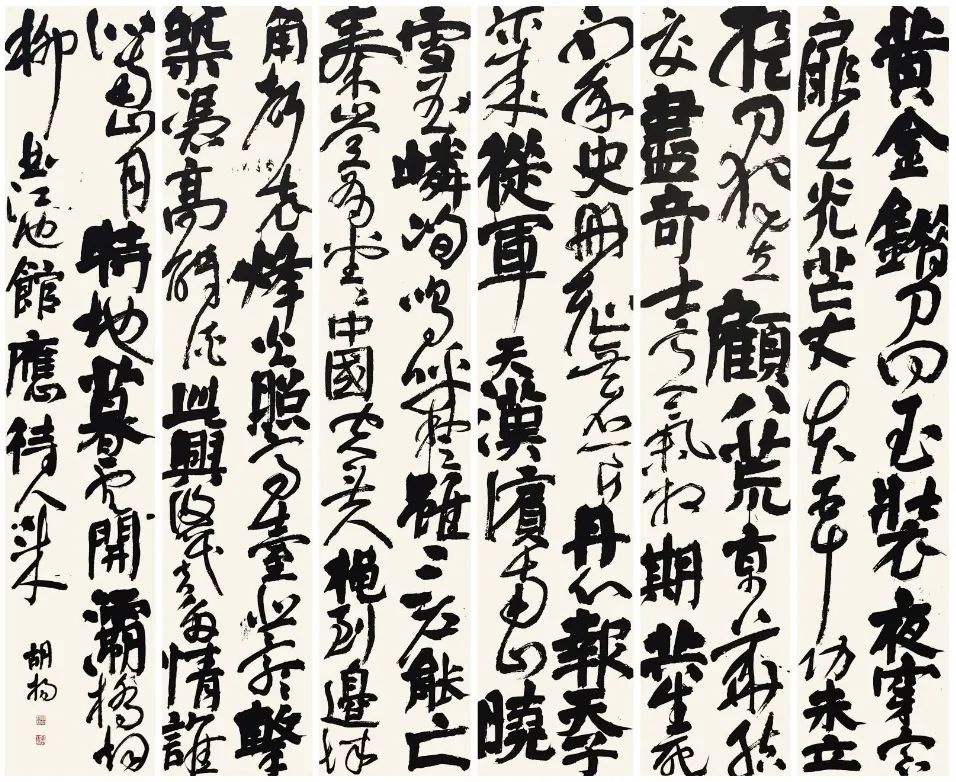 黃金錯刀白玉裝夜穿窗
扉出光芒丈夫五十功未立
提刀獨立顧八荒京華結
交盡奇士意氣相期共生死
千年史冊恥無名一片丹心報天子
爾來從軍天漢濱南山曉
雪玉嶙峋嗚呼楚雖三戶能亡
秦豈有堂々中國空無人秋到邊城
角聲哀烽火照高臺悲歌擊
築憑高酹酒此興悠哉多情誰
似南山月特地暮雲開灞橋烟
柳曲江池館應待人來
胡楊